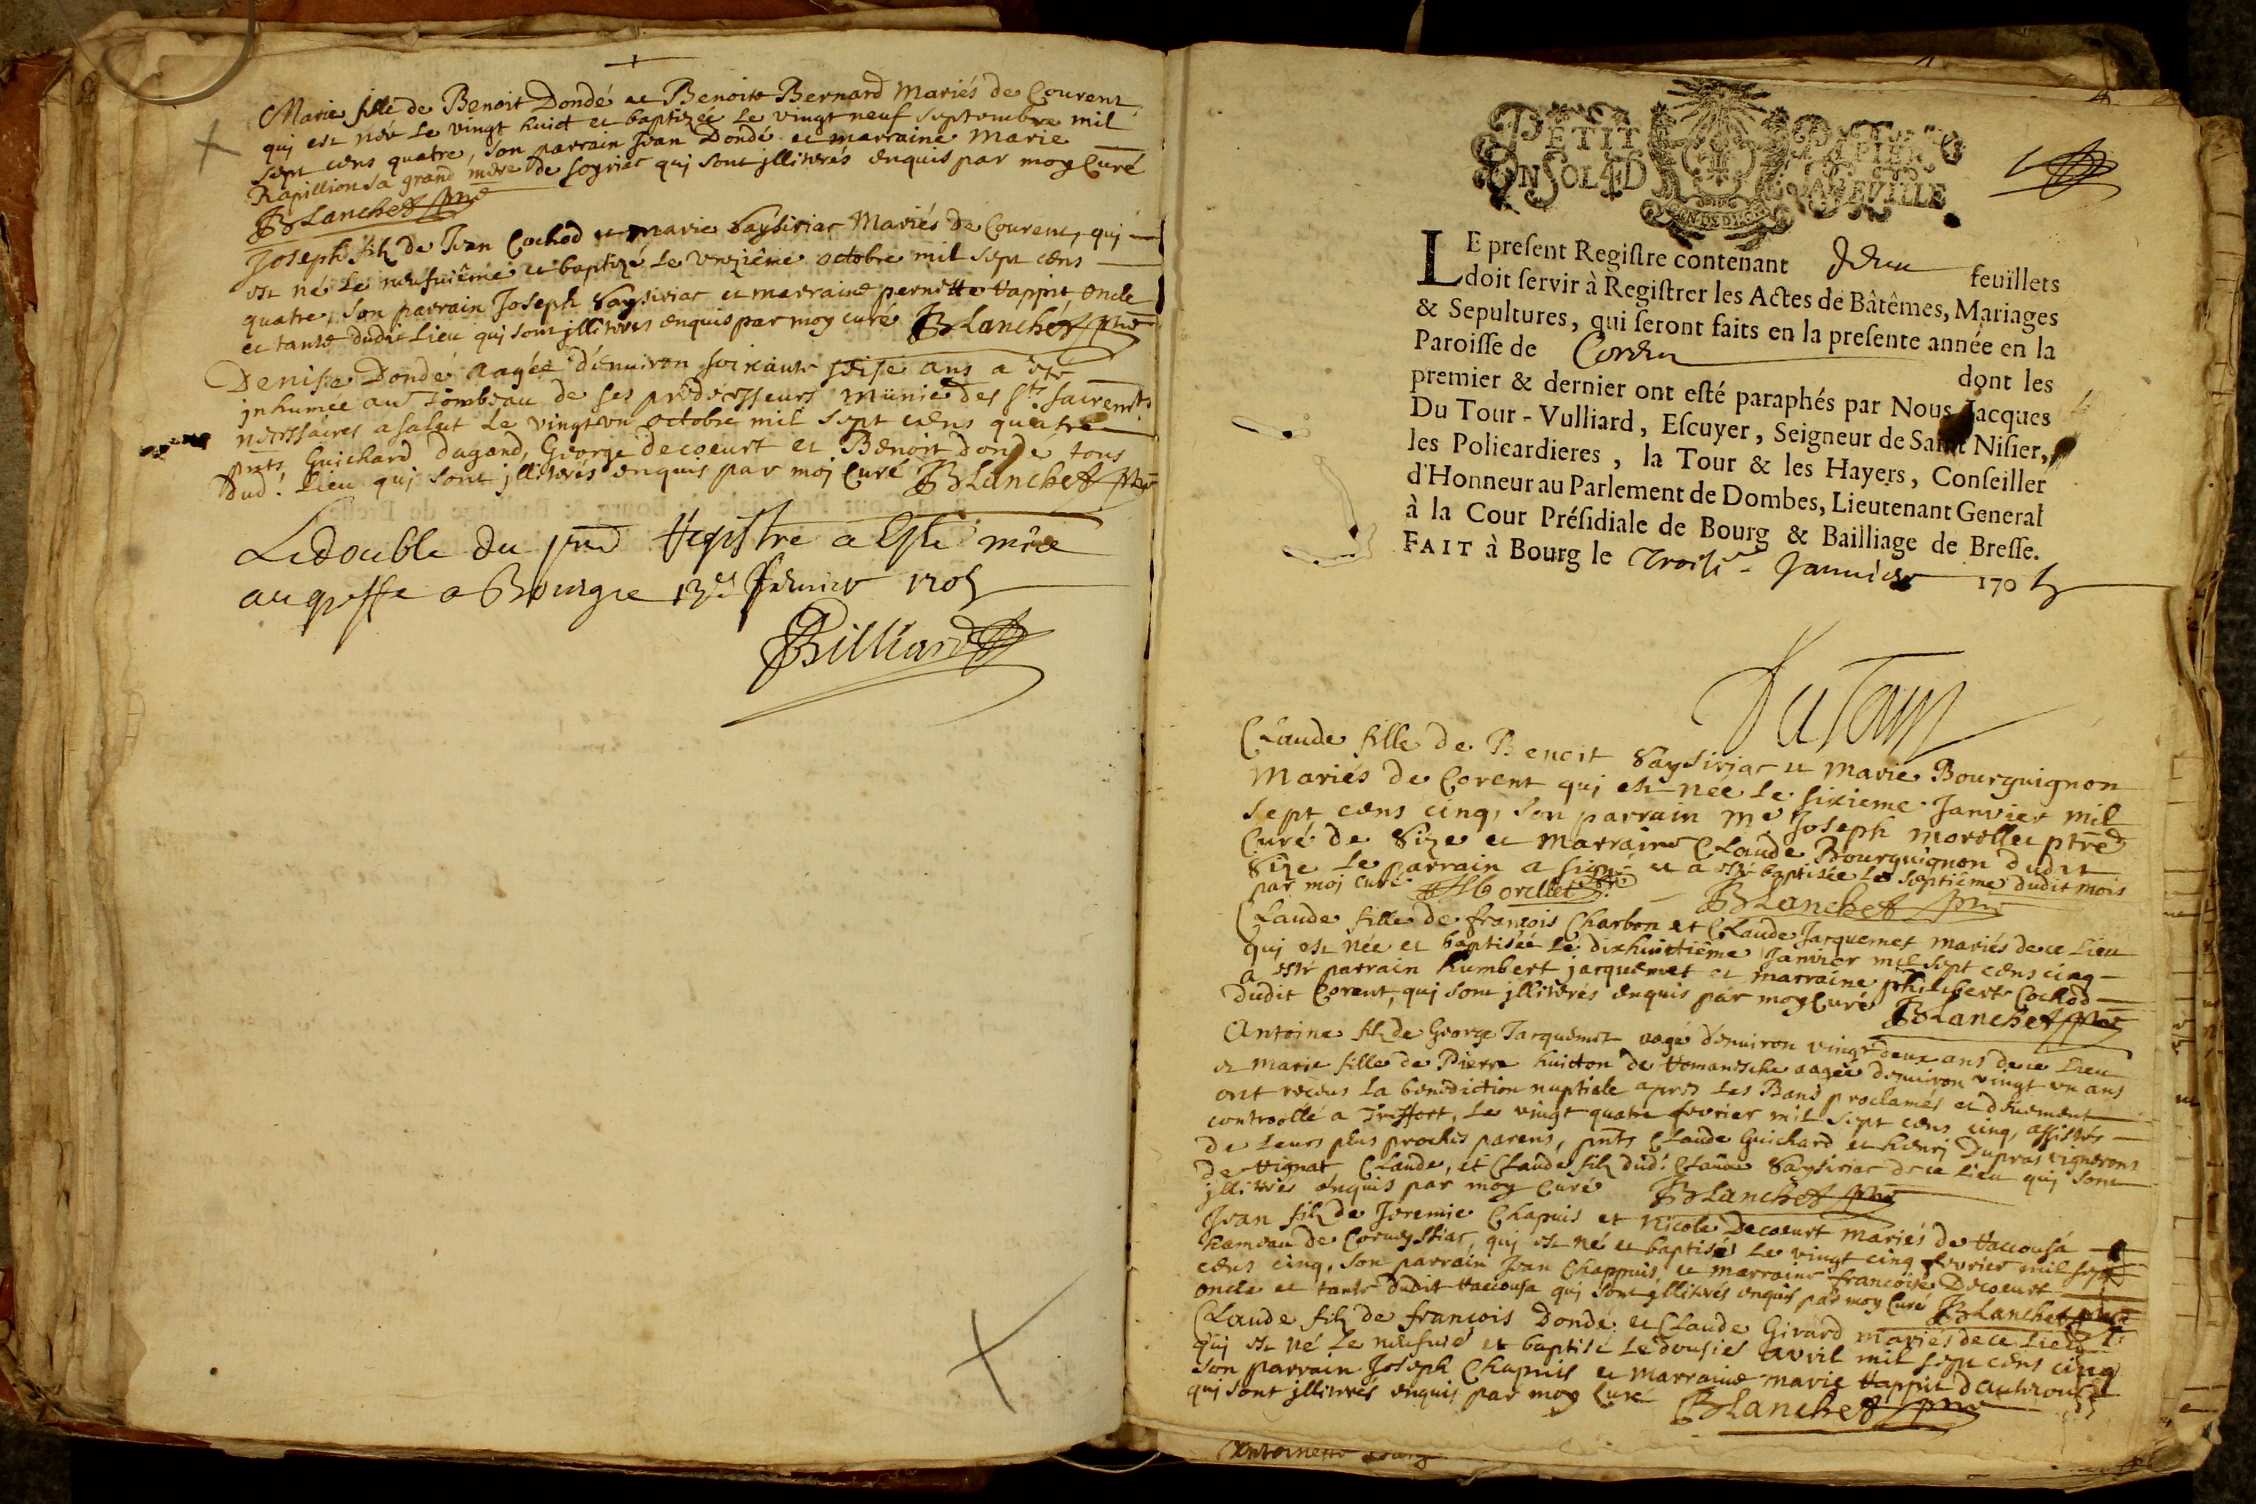 Marie fille de Benoit Dondé et Benoite Bernard Mariés de Courent
qui est née le vingt huict et baptizée le vingt neuf septembre mil
sept cens quatre, son parrain Jean Dondé et marraine Marie
Rapillion sa grand mere de soyriac qui sont jlliterés enquis par moy Curé
BLanchet ptre
Joseph filz de Jean Cochod et marie Saysiriac Mariés de Courent, qui
est né le neufuiême et baptizé le unziême octobre mil sept cens
quatre, son parrain Joseph Saysiriac et marraine pernette Vappit oncle
et tante dudit Lieu qui sont jlliterés enquis par moy curé BLanchet ptre
Denise Dondé aagée d'enuiron soixante seise ans a été
jnhumée au Tombeau de ses predecesseurs munie des sts sacrements
necessaires a salut le vingt un octobre mil sept cens quatre
pnts Guichard dagand, George decoeurt et Benoit donde tous
dud. Lieu qui sont jlliterés enquis par moi Curé BLanchet ptre
Le double du pnt Registre a esté mis
au greffe a Bourg le 13e feurier 1705
Billiard
PETIT PAPIER
UN SOL 4D LA FEUILLE
LE present Registre contenant feüillets
doit servir à Registrer les Actes de Bâtêmes, Mariages
& Sepultures, qui seront faits en la presente année en la
Paroisse de Coren dont les
premier & dernier ont esté paraphés par Nous Jacques
Du Tour-Vulliard, Escuyer, Seigneur de Saint Nisier,
les Policardieres, la Tour & les Hayers, Conseiller
d'Honneur au Parlement de Dombes, Lieutenant General
à la Cour Présidiale de Bourg & Bailliage de Bresse.
FAIT à Bourg le Troise Januier 1705
DuTour
Claude fille de Benoit Saysiriac et Marie Bourguignon
Mariés de Corent qui est née le sixieme Janvier mil
sept cens cinq, son parrain me Joseph morellet ptre
Curé de Size et marraine Claude Bourguignon dudit
Size le parrain a signé et a esté baptisée le septiême dudit mois
par moi curé Morellet BLanchet ptre
Claude fille de francois Charbon et Claude Jacquemet mariés de ce Lieu
qui est née et baptisée le dixhuictiême Janvier mil sept cens cinq
a esté parrain humbert jacquemet et marraine philiberte Cochod
dudit Corent, qui sont jlliterés enquis par moy curé BLanchet ptre
Antoine filz de George Jacquemet aagé d'enuiron vingt deux ans de ce Lieu
et marie fille de Pierre huicton de Romanesche aagée d'enuiron vingt un ans
ont receus la benediction nuptiale apres les Bans proclamés et deuement
controollé a Treffort, le vingt quatre fevrier mil sept cens cinq, assistés
de leurs plus proches parens, pnts Claude Guichard et henri Dupras vignerons
de Rignat Claude, et Claude filz dud. Claude Saysiriac de ce Lieu qui sont
jlliterés enquis par moy Curé BLanchet ptre
Jean filz de Jeremie Chapuis et Nicole Decoeurt mariés de Racousa
hameau de qui est né et baptisé le vingt cinq fevrier mil sept
cens cinq, son parrain Jean Chappuis et marraine francoise Decoeurt
oncle et tante dudit Racousa qui sont jlliterés enquis par moy Curé BLanchet ptre
Claude filz de francois Dondé et Claude Girard mariés de ce Lieu
qui est né le neufuie et baptisé le dousie avril mil sept cens cinq
son parrain Joseph Chapuis et marraine marie Vappit
qui sont jlliterés enquis par moy Curé BLanchet ptre
Antoinette